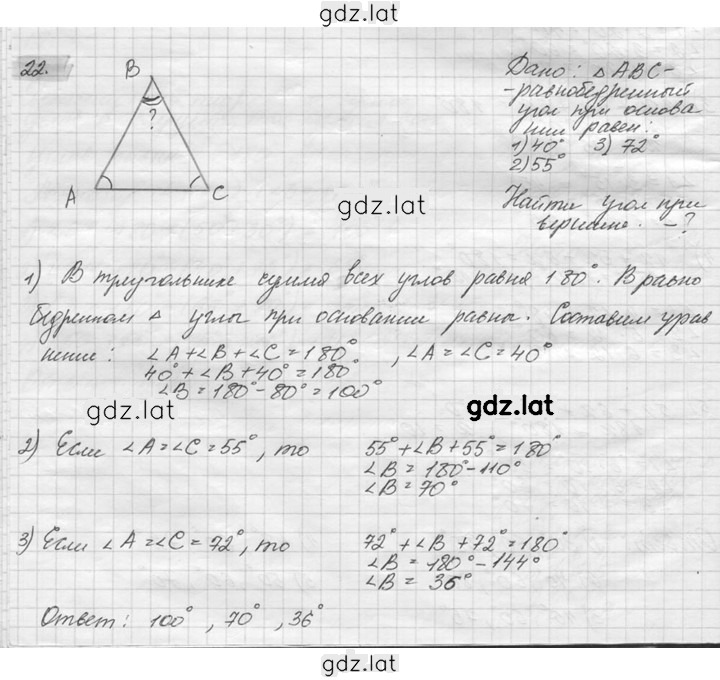 gdz.lat
22.
B
?
A
C
Дано: △ABC-
-равнобедренный
угол при основа
нии равен:
1) 40° 3) 72°
2) 55°
gdz.lat
Найти угол при
вершине. -?
1) В треугольнике сумма всех углов равна 180°. В равно
бедренном △ углы при основании равны. Составим урав
нение: ∠A+∠B+∠C=180°, ∠A=∠C=40°
40°+∠B+40°=180°
∠B=180°-80°=100°
gdz.lat
gdz.lat
2) Если ∠A=∠C=55°, то 55°+∠B+55°=180°
∠B=180°-110°
∠B=70°
3) Если ∠A=∠C=72°, то 72°+∠B+72°=180°
∠B=180°-144°
∠B=36°
Ответ: 100°, 70°, 36°
gdz.lat